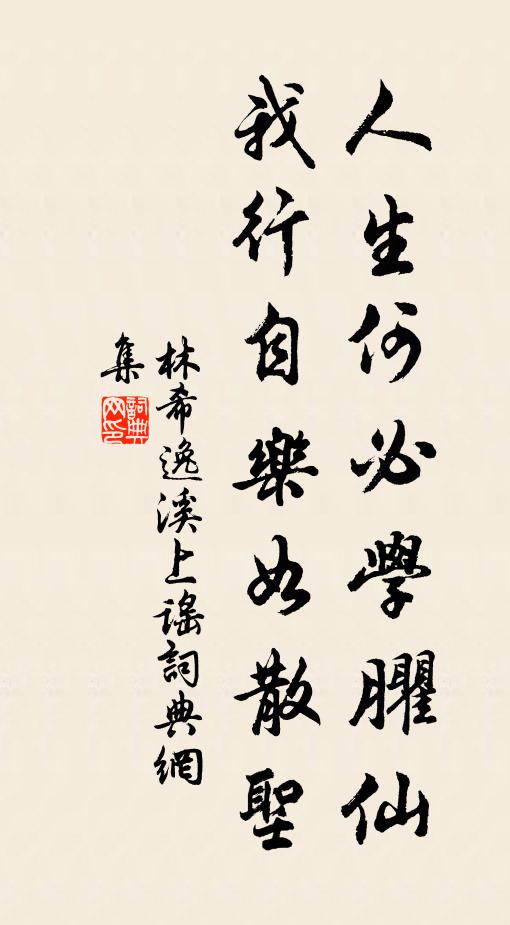 人生何必學臞仙
我行自樂如散聖
林希逸溪上謠詞典網
集
詞典網印